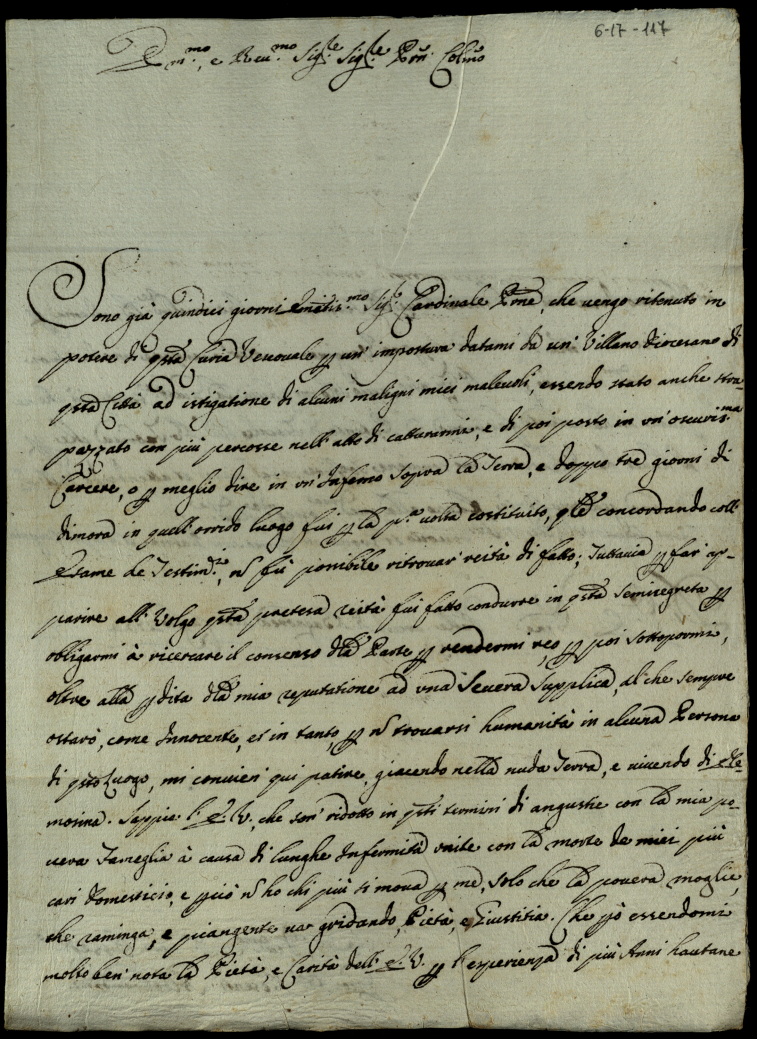 6-17-117
Em.mo, e Reu.mo Sig.re Sig.re Prõn Colmõ
Sono già quindici giorni Eminẽtis.mo Sig.r Cardinale Prñe, che vengo ritenuto in
potere di qsta Curia Vescouale p un' impostura datami da un' Villano diocesano di
qsta Città ad istigatione di alcuni maligni miei maleuoli, essendo stato anche stra-
pazzato con più percosse nell' atto di catturarmi, e di poi posto in un' oscuris.ma
Carcere, o p meglio dire in un' Inferno sopra la Terra, e doppo tre giorni di
dimora in quell' orrido luogo fui p la p.a volta costituito, qle concordando coll'
Esame de Testim.i, nõ fù possibile ritrouar' reità di fatto; Tuttauia p far' ap-
parire all' Volgo qsta pretesa reità fui fatto condurre in qsta semisegreta p
obligarmi à ricercare il consenso dla Parte p rendermi reo, p poi sottopormi,
oltre alla pdita dla mia reputatione ad una seuera supplica, al che sempre
ostarò, come Innocente, et in tanto, p nõ trouarsi humanità in alcuna Persona
di qsto luogo, mi conuien' qui patire, giacendo nella nuda Terra, e uiuendo di ele-
mosina. Sappia l' E. V., che son' ridotto in qsti termini di angustie con la mia po-
uera Fameglia à causa di lunghe Infermità unite con la morte de miei più
cari domesticio, e pciò nõ ho chi più si moua p me, solo che la pouera moglie,
che raminga, e piangente uà gridando, Pietà, e Giustitia. Che pò essendomi
molto ben' nota la Pietà, e Carità dell' E. V. p l' esperienza di più Anni hautane